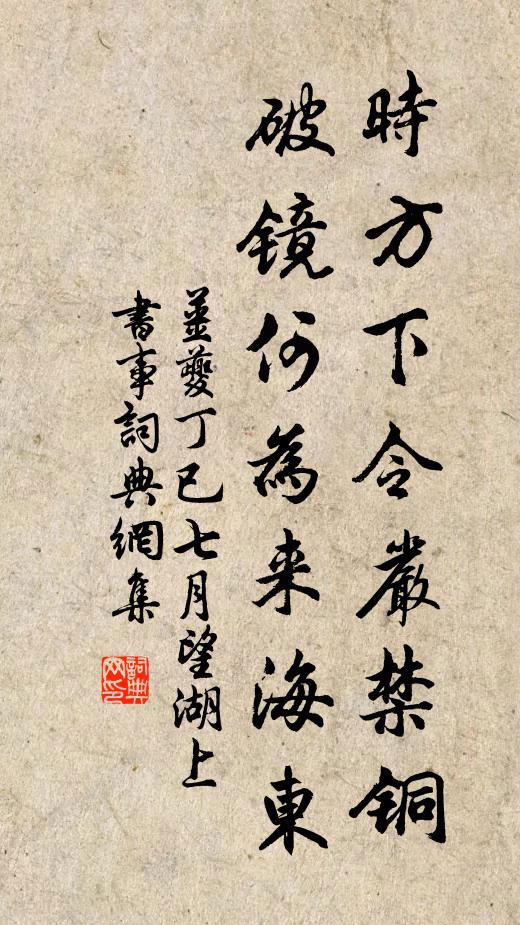 時方下令嚴禁銅
破镜何為来海東
姜夔丁巳七月望湖上
書事詞典網集
詞典網印